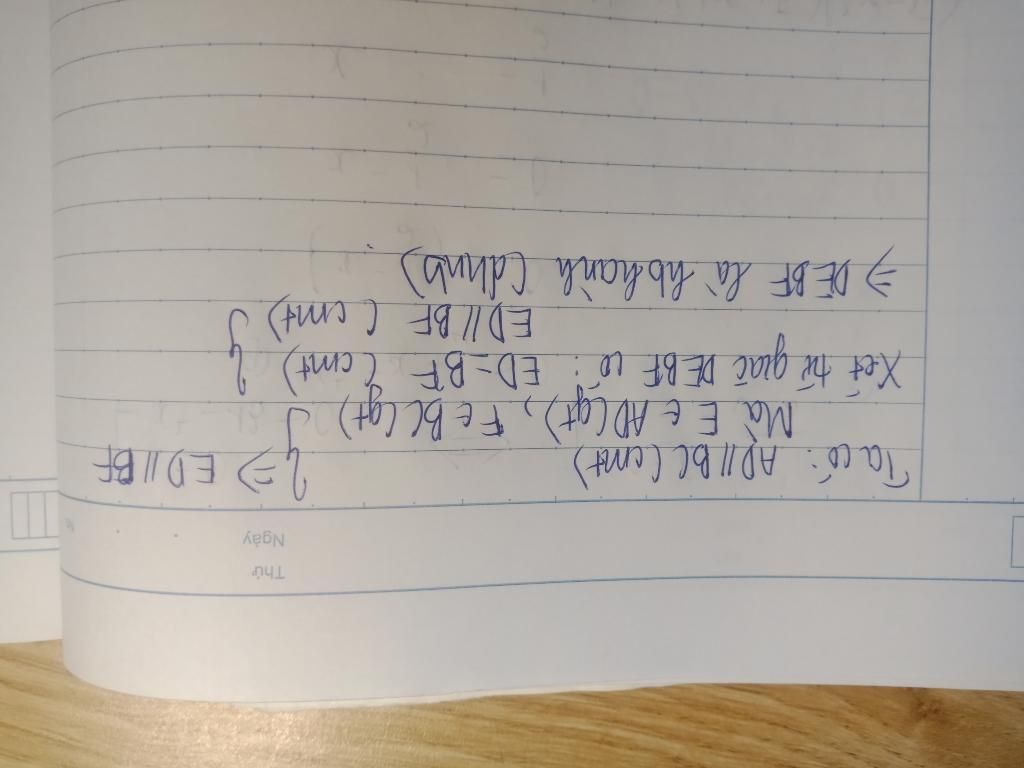 Thứ
Ngày
Ta có: AD // BC (cmt) } => ED // BF
Mà E ∈ AD (gt), F ∈ BC (gt) }
Xét tứ giác DEBF có: ED = BF (cmt) }
ED // BF (cmt) }
=> DEBF là hbhành (dhnb).